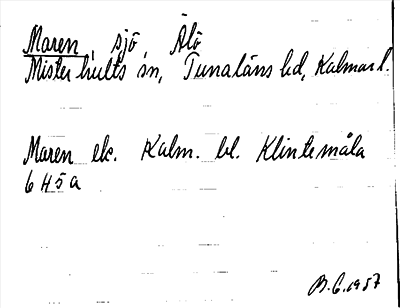 Maren, sjö, Älö
Misterhults sn, Tunaläns hd, Kalmar l.
Maren ek. Kalm. bl. Klintemåla
6H5a
B.G. 1957